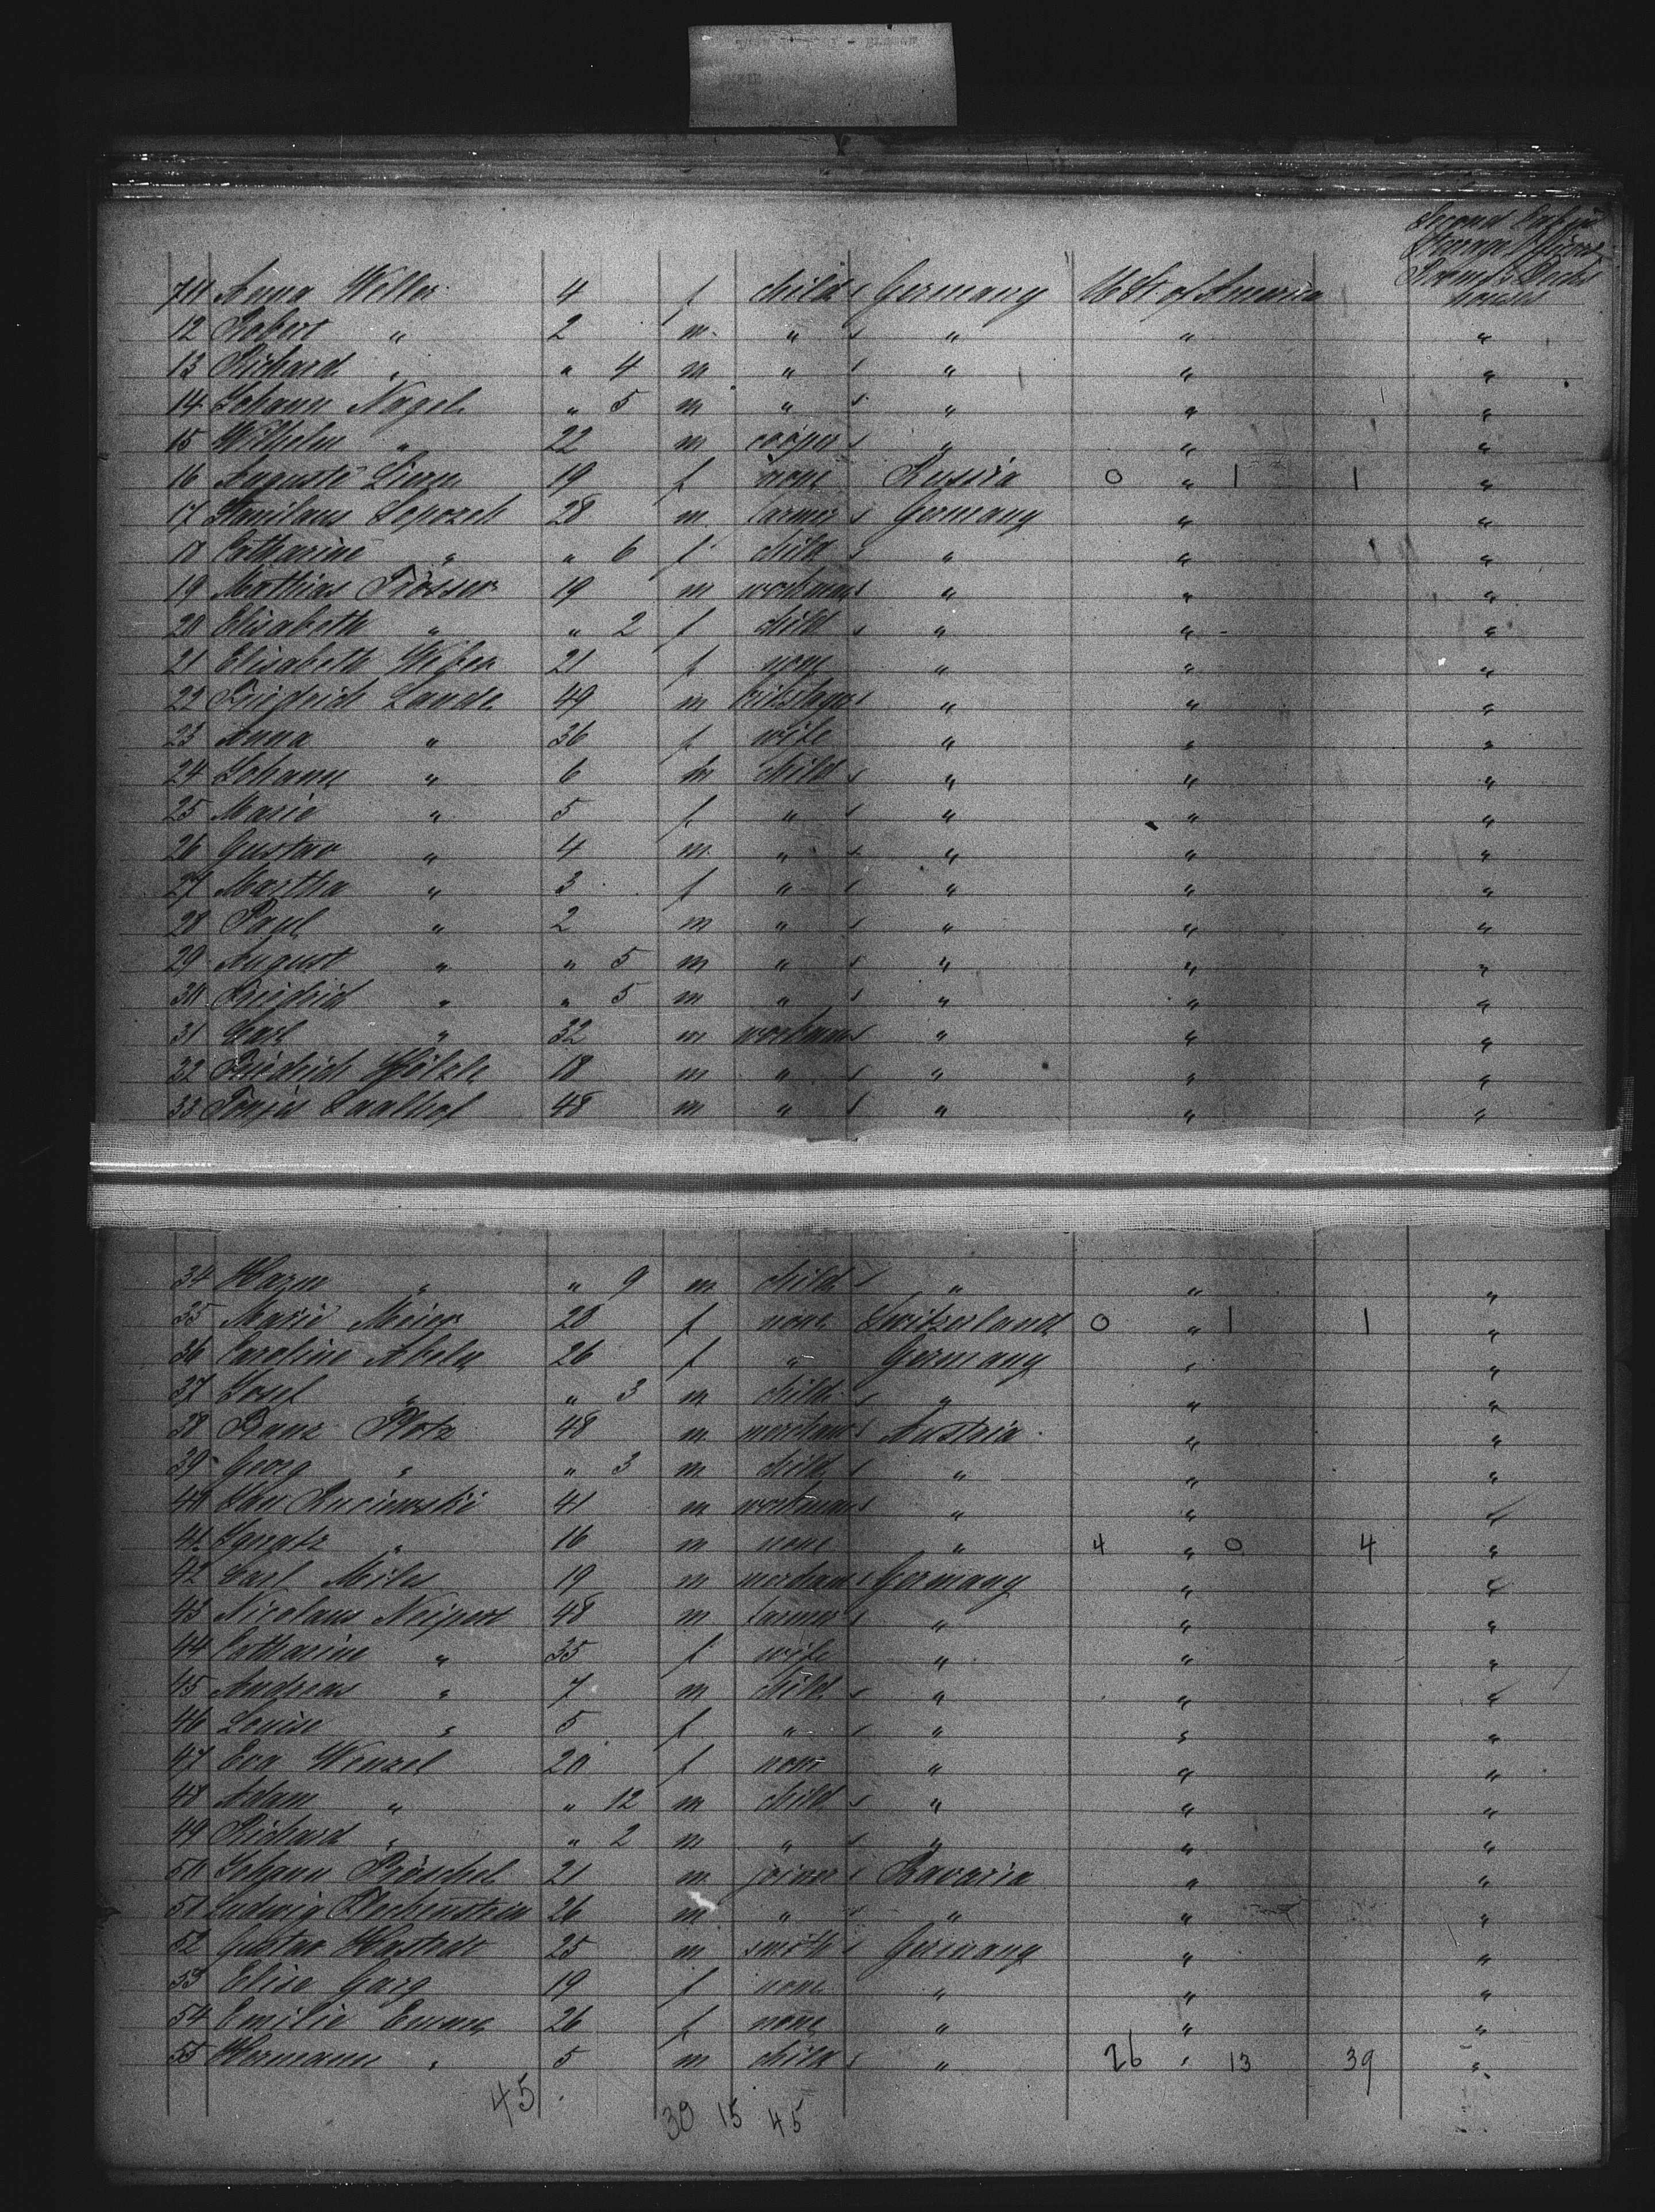 Second Cabin
Steerage
711 Anna Weller 4 f child s Germany U St of America
12 Robert " 2 m " s " " "
13 Richard " " 4 m " s " " "
14 Johann Nagel " 5 m " s " " "
15 Wilhelm " 22 m cooper s " " "
16 Auguste 19 f none Russia 0 " 1 1 "
17 28 m farmer s Germany " "
18 Catharine " " 6 f child s " " "
19 Mathias 19 m workman s " " "
20 Elisabeth " " 2 f child s " " "
21 Elisabeth Weber 21 f none " " "
22 Friedrich Lande 49 m s " " "
23 Anna " 36 f wife " " "
24 Johann " 6 m child s " " "
25 Marie " 5 f " s " " "
26 Gustav " 4 m " s " " "
27 Martha " 3 f " s " " "
28 Paul " 2 m " s " " "
29 August " " 5 m " s " " "
30 Friedrich " " 5 m " s " " "
31 Carl " 32 m workman s " " "
32 Friedrich Hölzle 18 m " s " " "
33 Saathof 48 m " s " " "
34 Harm " " 9 m child s " " "
35 Marie Meier 20 f none Switzerland 0 " 1 1 "
36 Caroline Abeln 26 f " Germany " "
37 Josef " " 3 m child s " " "
38 Franz Plotz 48 m merchant s Austria " "
39 Georg " " 3 m child s " " "
40 Jan 41 m workman s " " "
41 Ignatz " 16 m none " 4 " 0 4 "
42 Carl Miles 19 m merchant s Germany " "
43 Nicolaus Neipert 48 m farmer s " " "
44 Catharine " 35 f wife " " "
45 Andreas " 7 m child s " " "
46 Louise " 5 f " s " " "
47 Eva Wenzel 20 f none " " "
48 Adam " " 12 m child s " " "
49 Richard " " 2 m " s " " "
50 Johann Pröschel 21 m joiner s Bavaria " "
51 Ludwig 26 m " s " " "
52 Gustav 25 m smith s Germany " "
53 Elise Garg 19 f none " " "
54 Emilie 26 f none " " "
55 Hermann " 5 m child s " 26 " 13 39 "
45 30 15 45